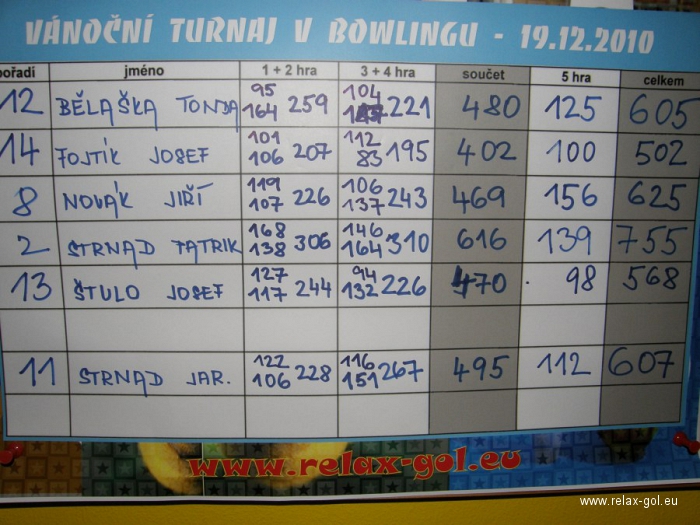 VÁNOČNÍ TURNAJ V BOWLINGU - 19.12.2010
pořadí jméno 1 + 2 hra 3 + 4 hra součet 5 hra celkem
12 BĚLAŠKA TONDA 95 164 259 104 221 480 125 605
14 FOJTÍK JOSEF 101 106 207 112 83 195 402 100 502
8 NOVÁK JIŘÍ 119 107 226 106 137 243 469 156 625
2 STRNAD PATRIK 168 138 306 146 164 310 616 139 755
13 ŠTULO JOSEF 127 117 244 94 132 226 470 98 568
11 STRNAD JAR. 122 106 228 116 151 267 495 112 607
www.relax-gol.eu
www.relax-gol.eu